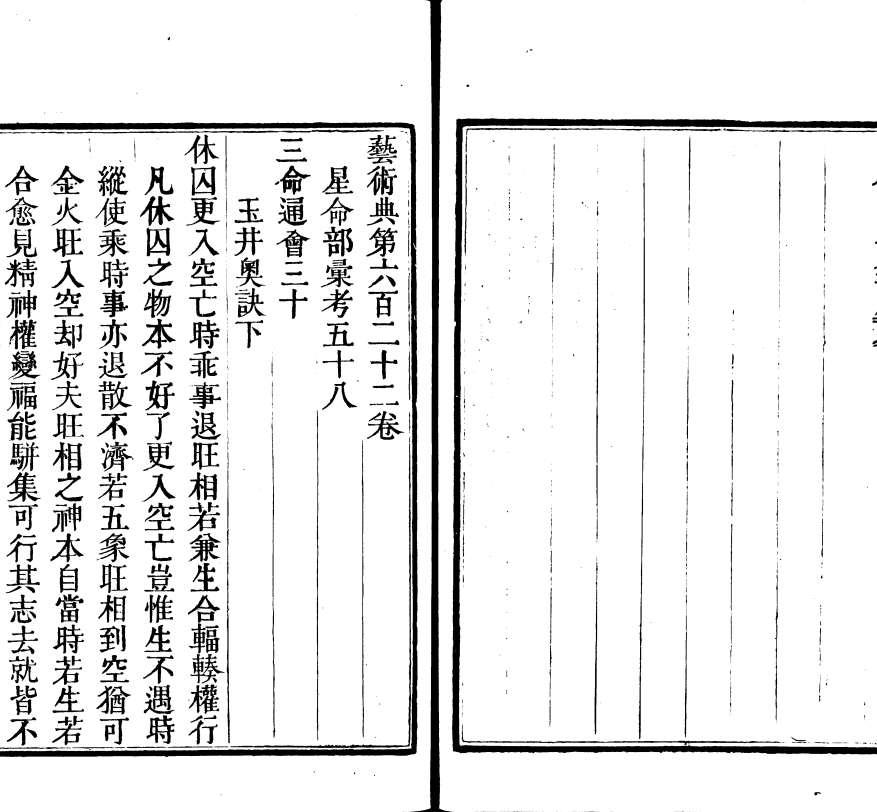 藝術典第六百二十二卷
星命部彙考五十八
三命通會三十
玉井奧訣下
休囚更入空亡時乖事退旺相若兼生合輻輳權行
凡休囚之物本不好了更入空亡豈惟生不遇時
縱使乘時事亦退散不濟若五象旺相到空猶可
金火旺入空却好夫旺相之神本自當時若生若
合愈見精神權變福能駢集可行其志去就皆不